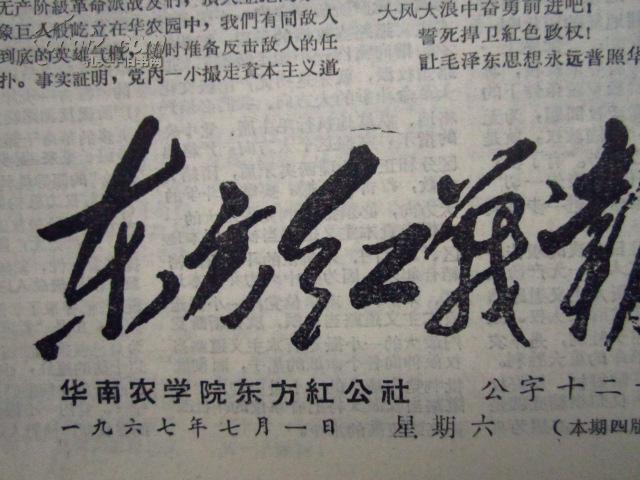 无产阶級革命派战友们,
象巨人般屹立在华农园中,我們有同敌人
到底的英雄气概,随时准备反击敌人的任
扑。事实証明,党內一小撮走資本主义道
大风大浪中奋勇前进吧!
誓死捍卫紅色政权!
让毛泽东思想永远普照华
东方红战报
华南农学院东方紅公社 公字十二
一九六七年七月一日 星期六 (本期四版